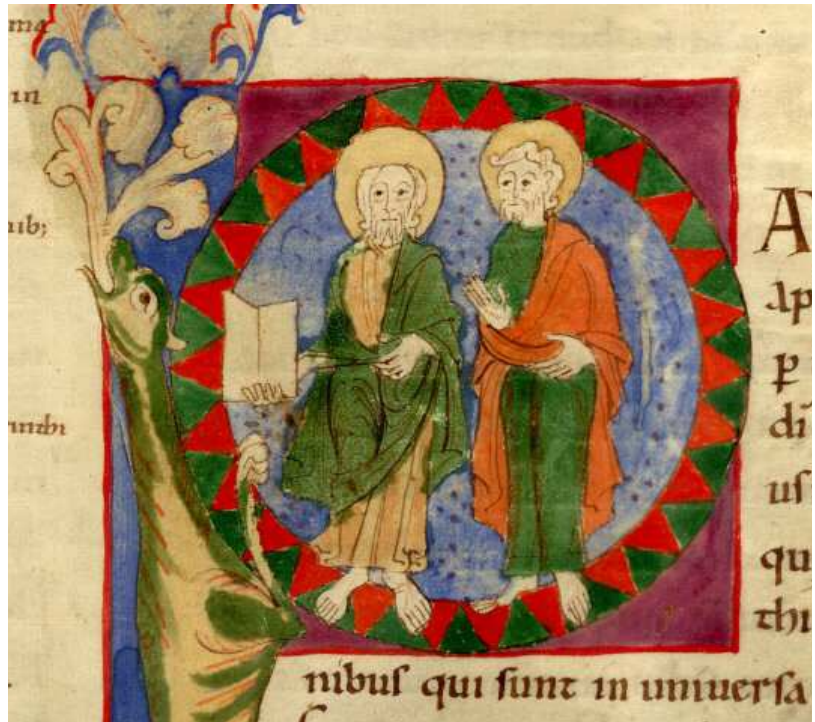 ma
in
ib;
A
ap
p̄
di
uſ
qu
thi
nibuſ qui ſunt in uniuerſa